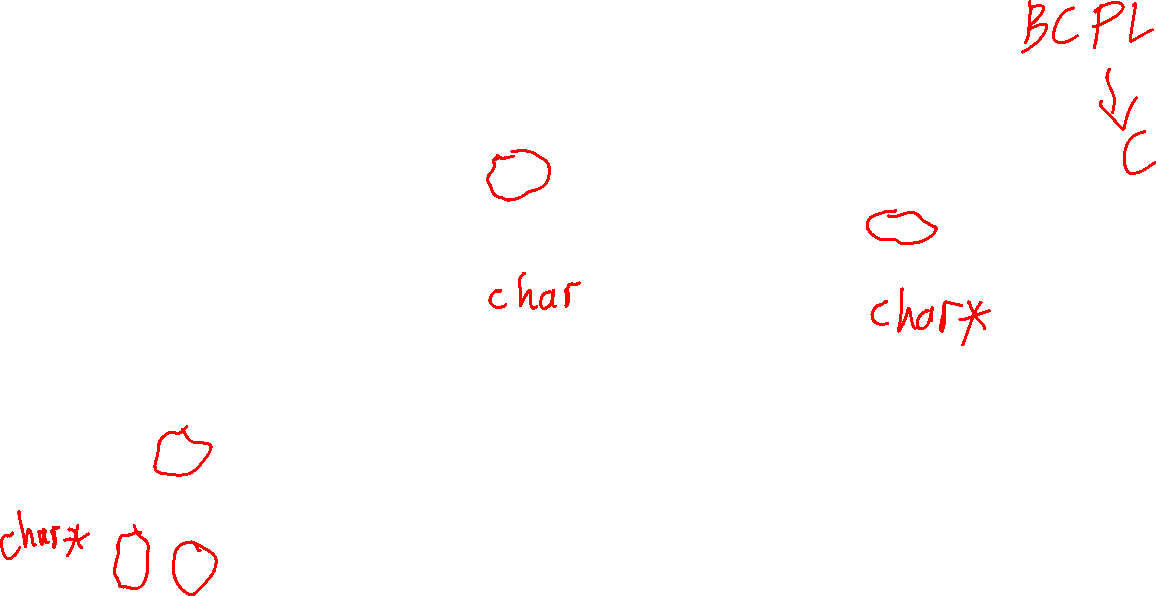 BCPL
C
char
char*
char*